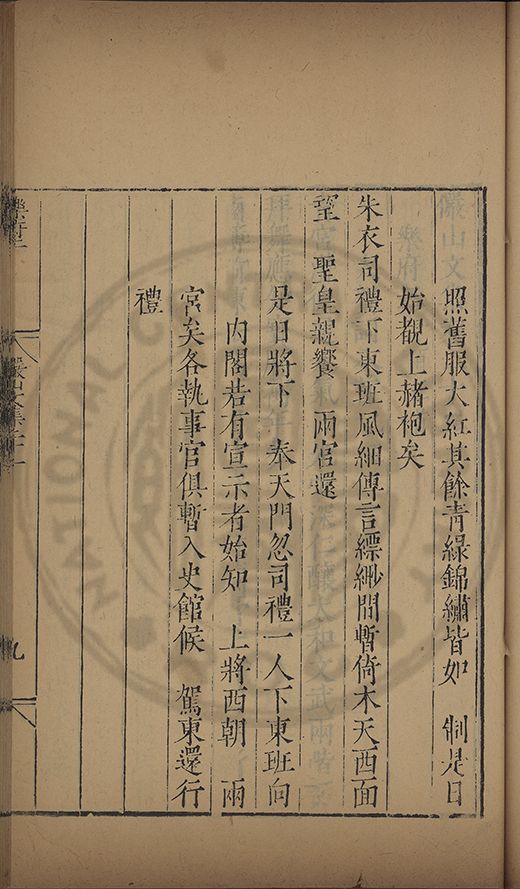 照舊服大紅其餘青綠錦繡皆如　制是日
始覩上赭袍矣
朱衣司禮下東班風細傳言縹緲間暫倚木天西面
望　聖皇親饗　兩宫還
是日將下　奉天門忽司禮一人下東班向
内閣若有宣示者始知　上將西朝　兩
宫矣各執事官俱暫入史館候　駕東還行
禮
儼山文集卷二十一
九